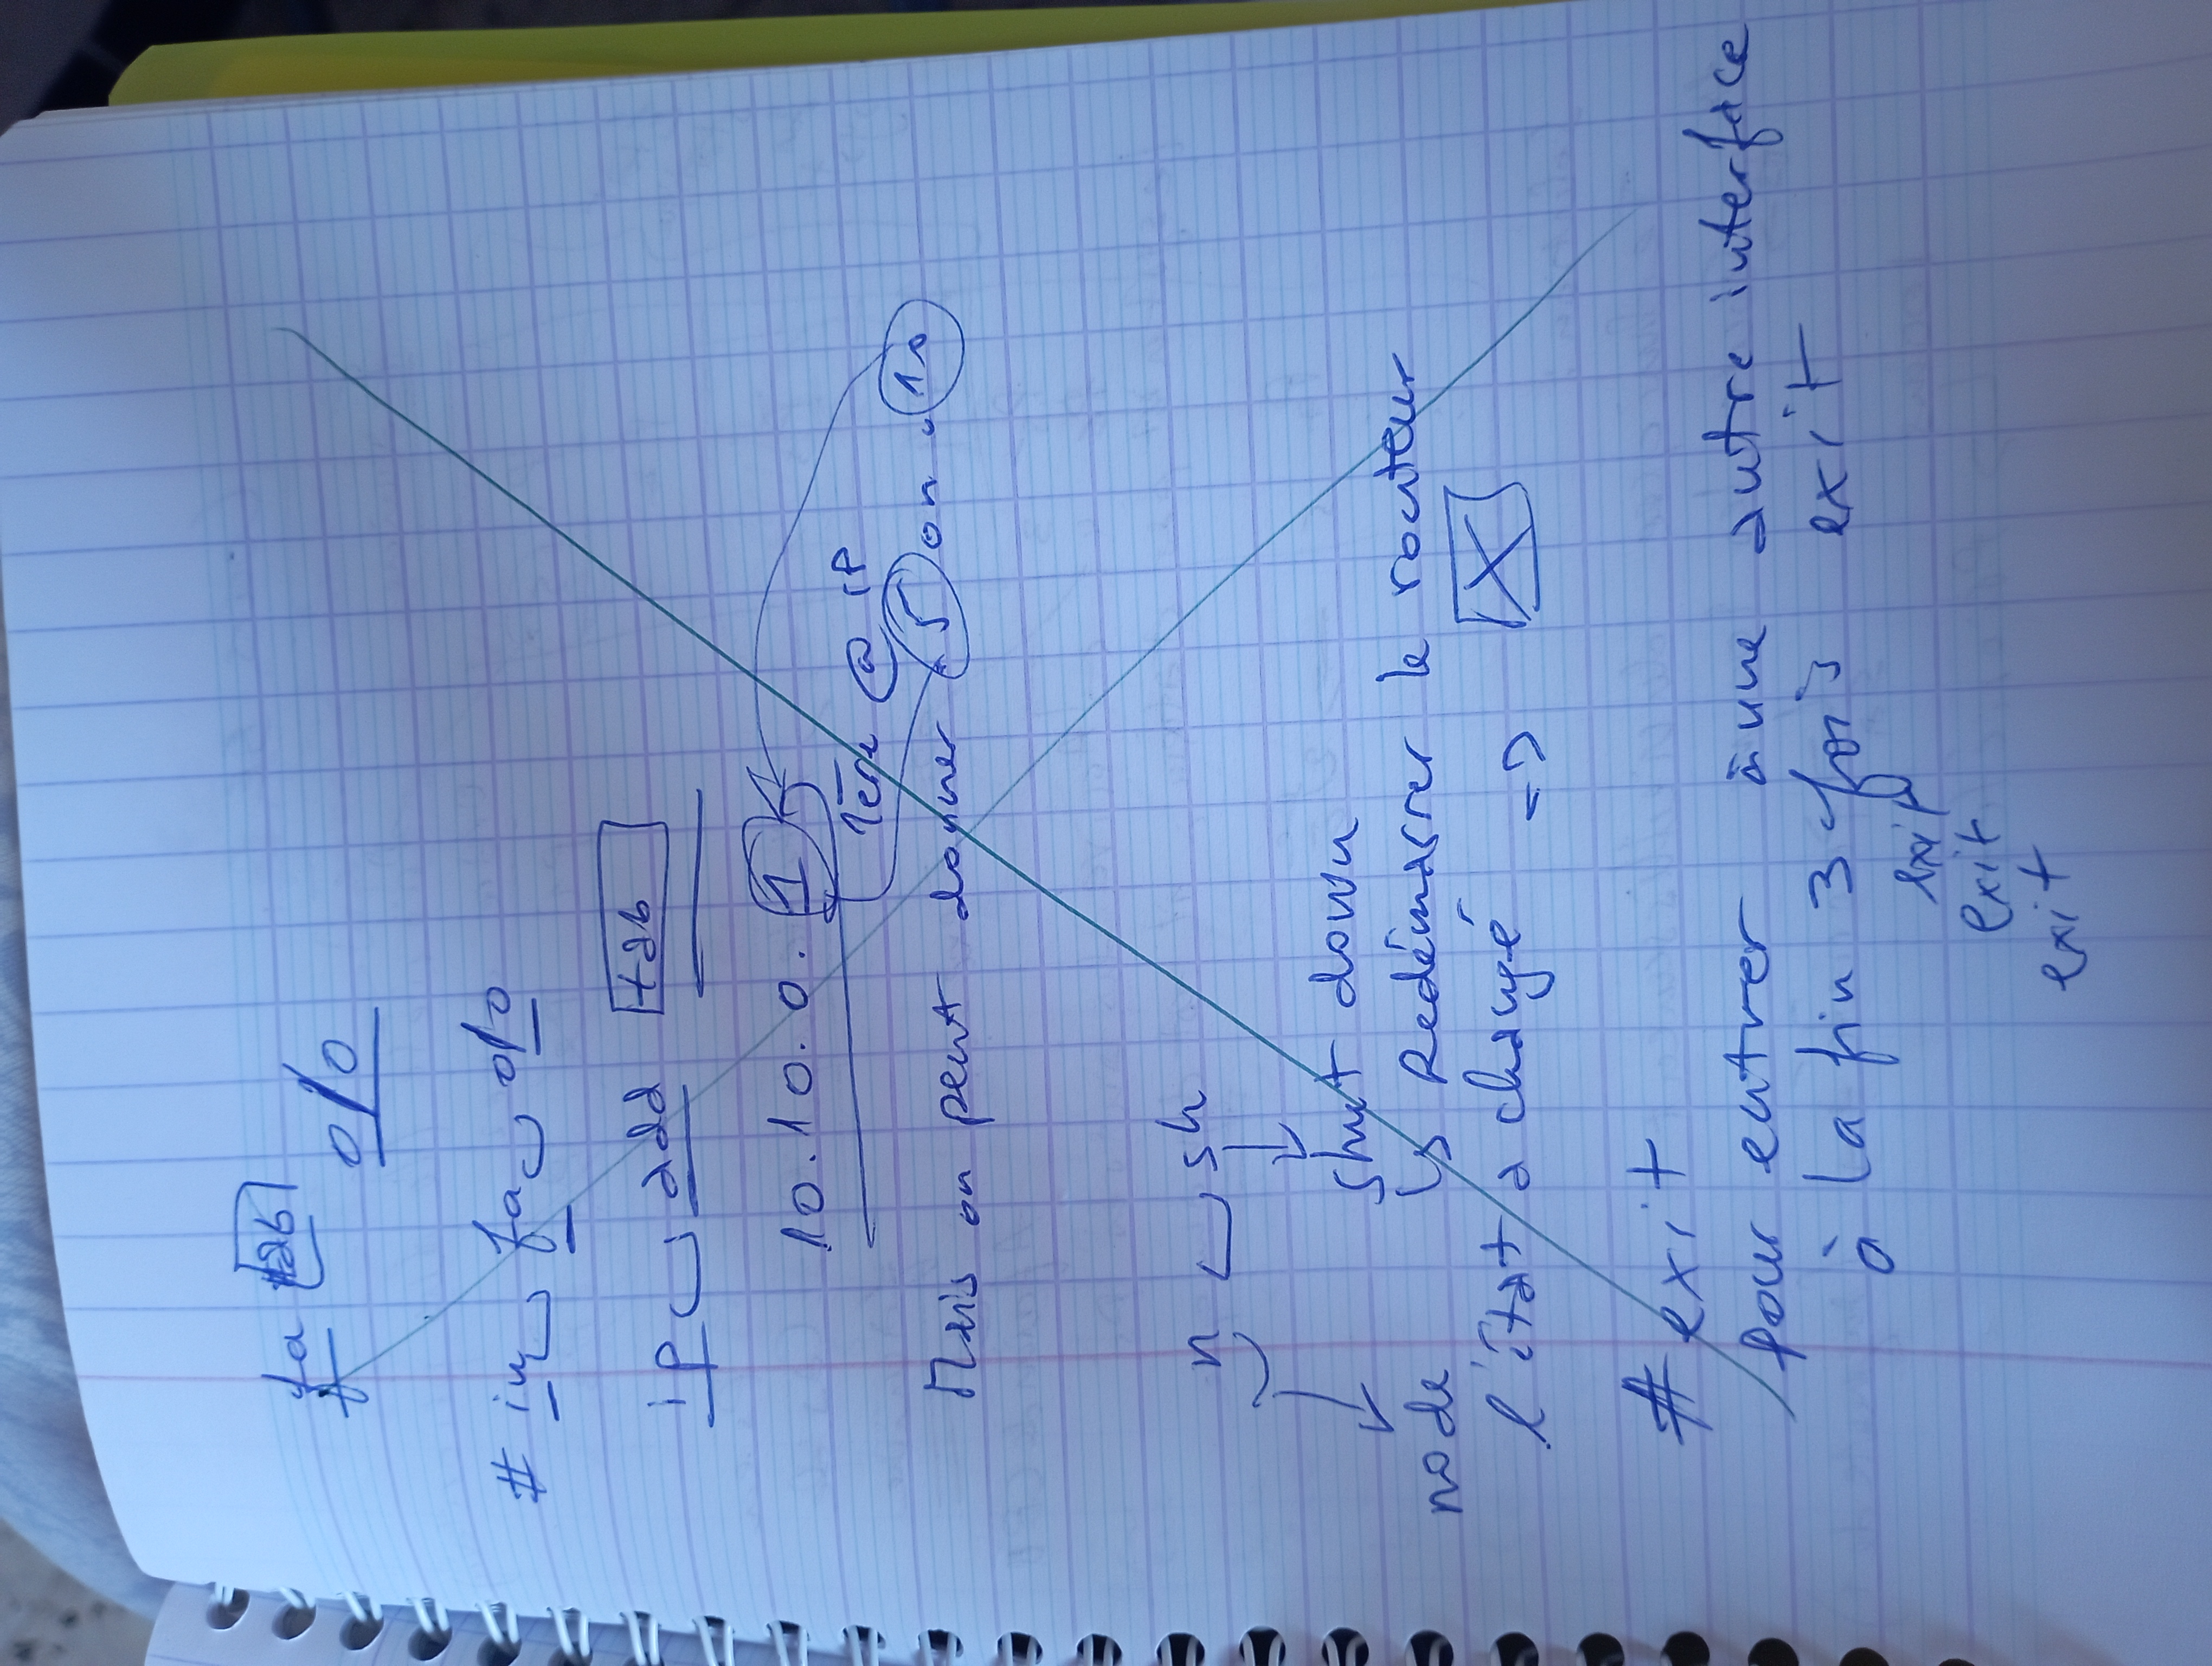 fa tab
0/0
# in fa 0/0
ip add tab
10.10.0.1
1ère @ IP
Mais on peut donner .5 ou .10
n sh
shut down
node
Redémarrer le routeur
l'état a changé => X
# exit
pour entrer à une autre interface
à la fin 3 fois exit
exit
exit
exit